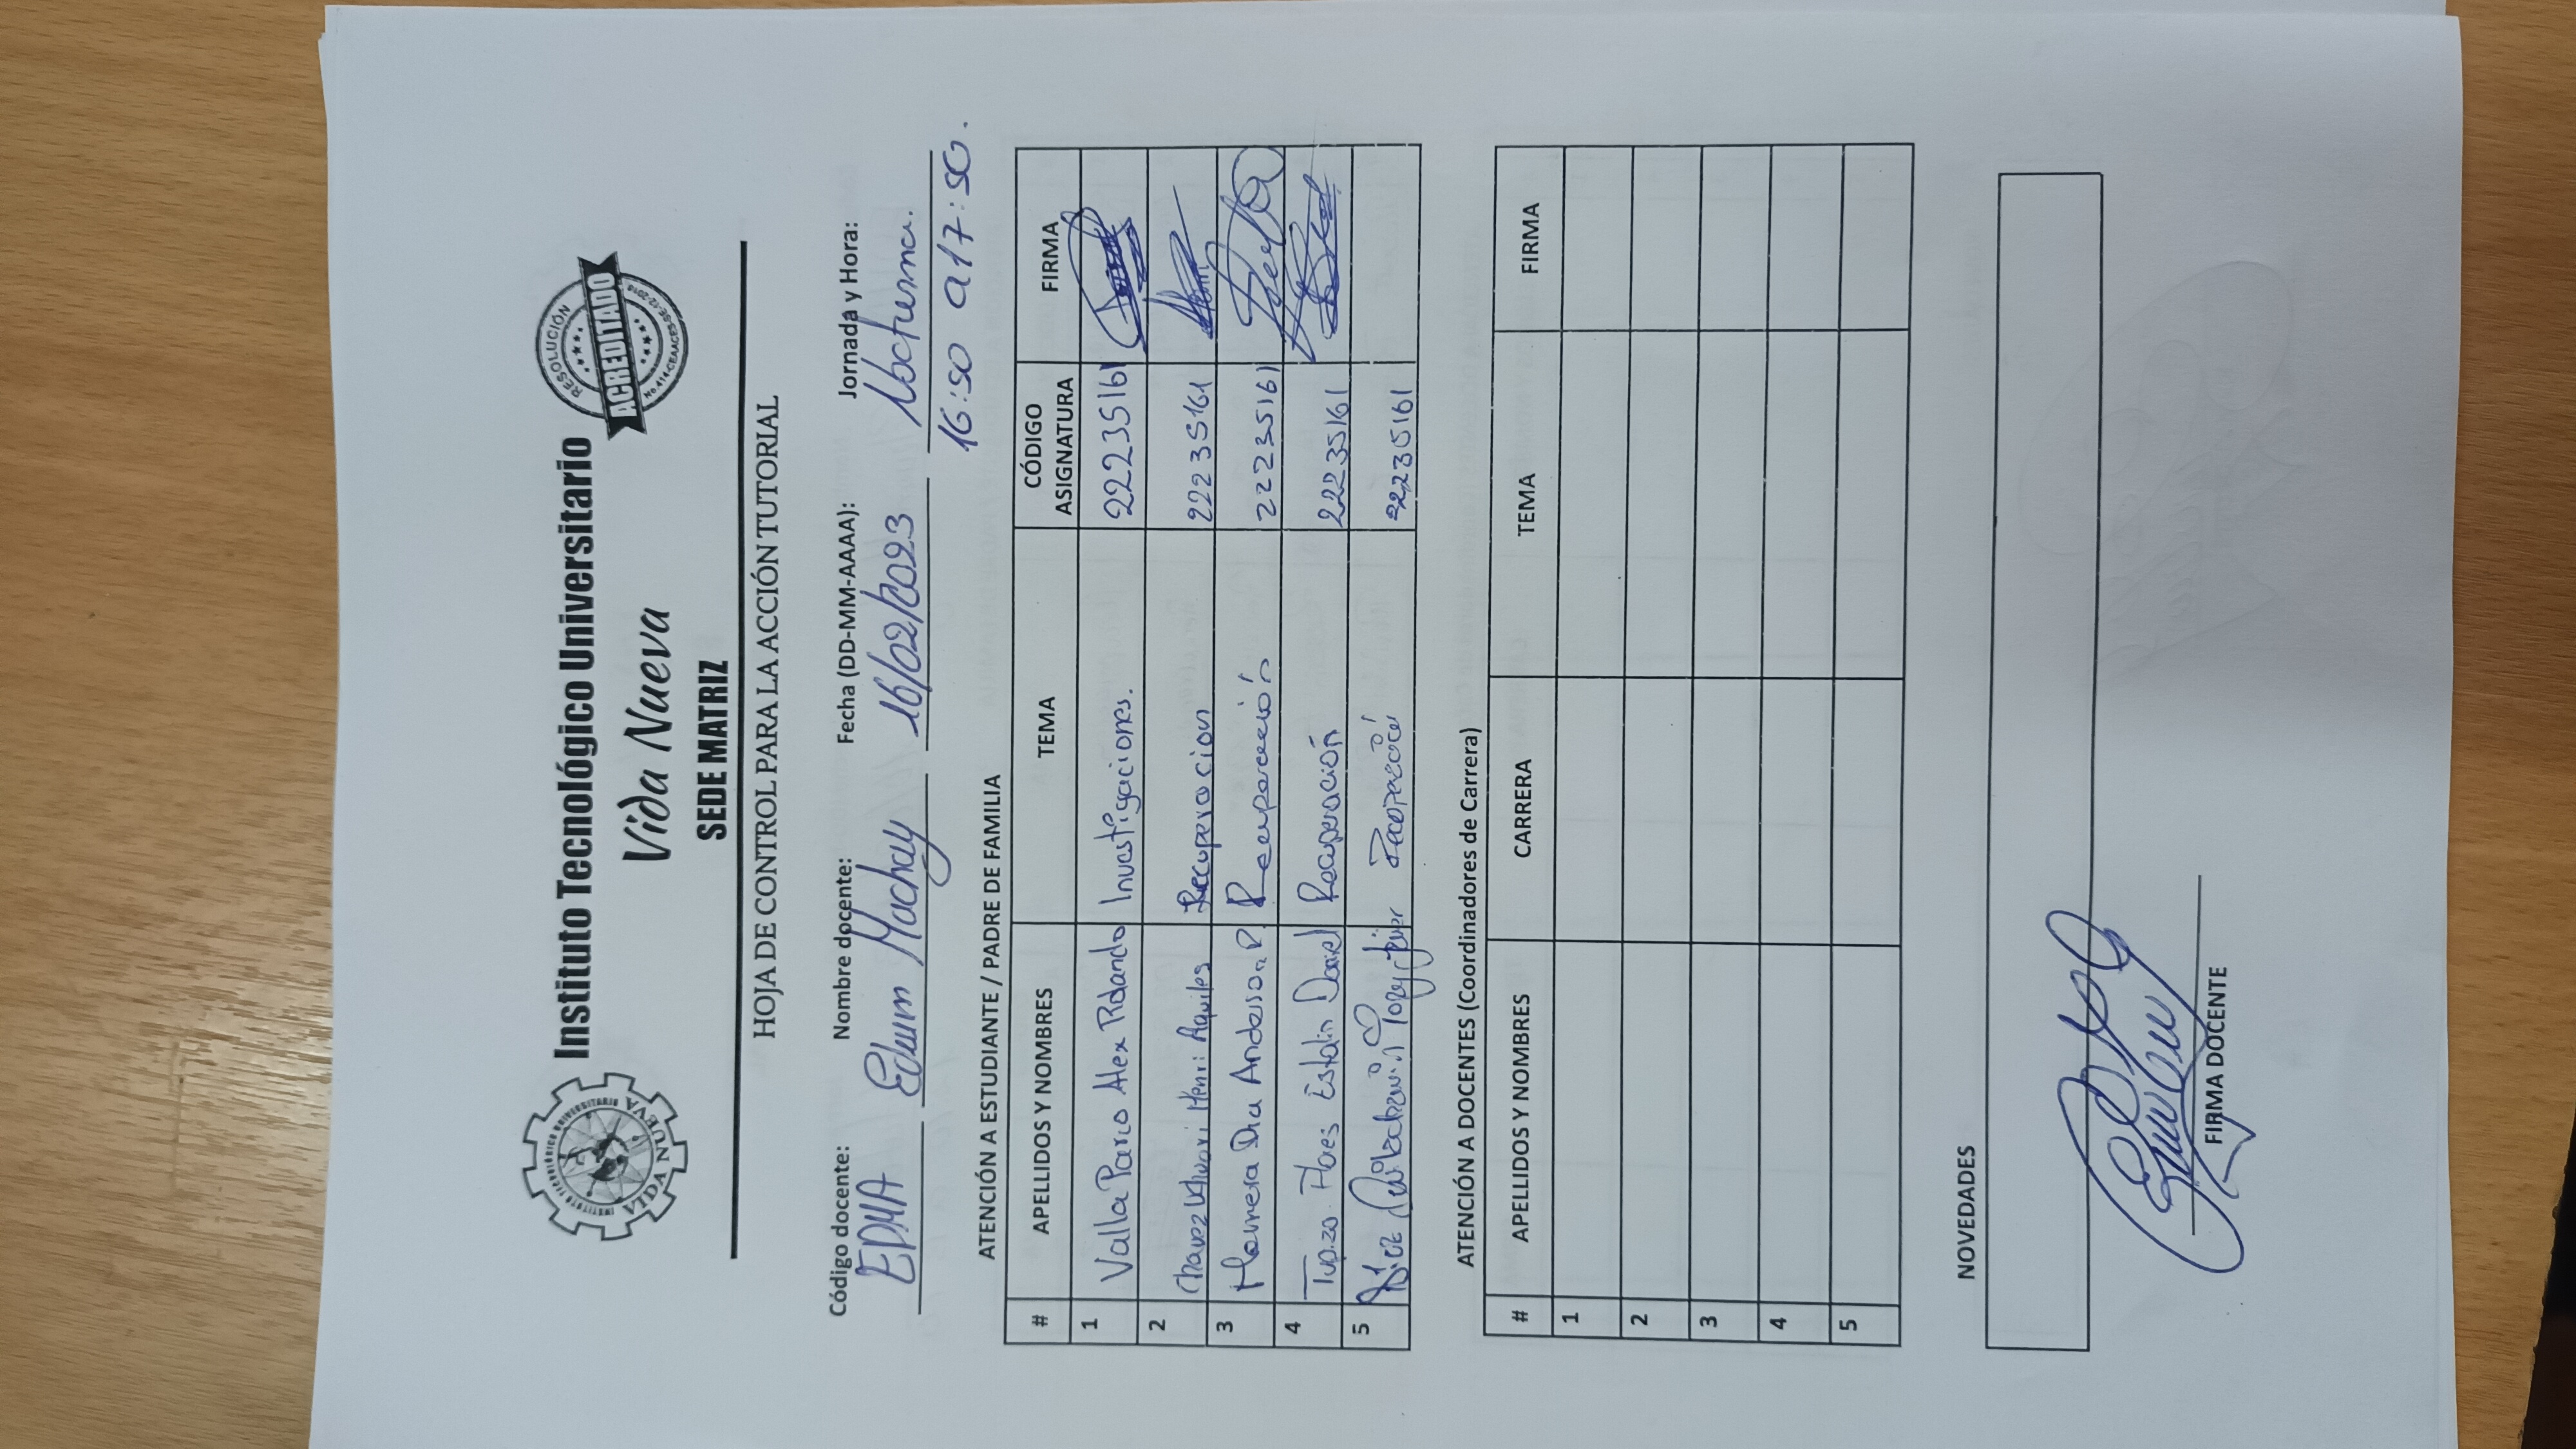 INSTITUTO TECNOLÓGICO UNIVERSITARIO
VIDA NUEVA
Instituto Tecnológico Universitario
Vida Nueva
SEDE MATRIZ
RESOLUCIÓN
ACREDITADO
No.414-CEAACES-SE-12-2018
HOJA DE CONTROL PARA LA ACCIÓN TUTORIAL
Código docente: Nombre docente: Fecha (DD-MM-AAAA): Jornada y Hora:
EDMA Edwin Machay 16/02/2023 Nocturna.
16:50 a 17:50.
ATENCIÓN A ESTUDIANTE / PADRE DE FAMILIA
# APELLIDOS Y NOMBRES TEMA CÓDIGO ASIGNATURA FIRMA
1 Valla Parco Alex Rolando Investigaciones. 22235161
2 Chavez Henri Aquiles Recuperacion 22235161
3 Herrera Anderson Recuperación 22235161
4 Estalin Daniel Recuperación 22235161
5 Recuperación 22235161
ATENCIÓN A DOCENTES (Coordinadores de Carrera)
# APELLIDOS Y NOMBRES CARRERA TEMA FIRMA
1
2
3
4
5
NOVEDADES
FIRMA DOCENTE